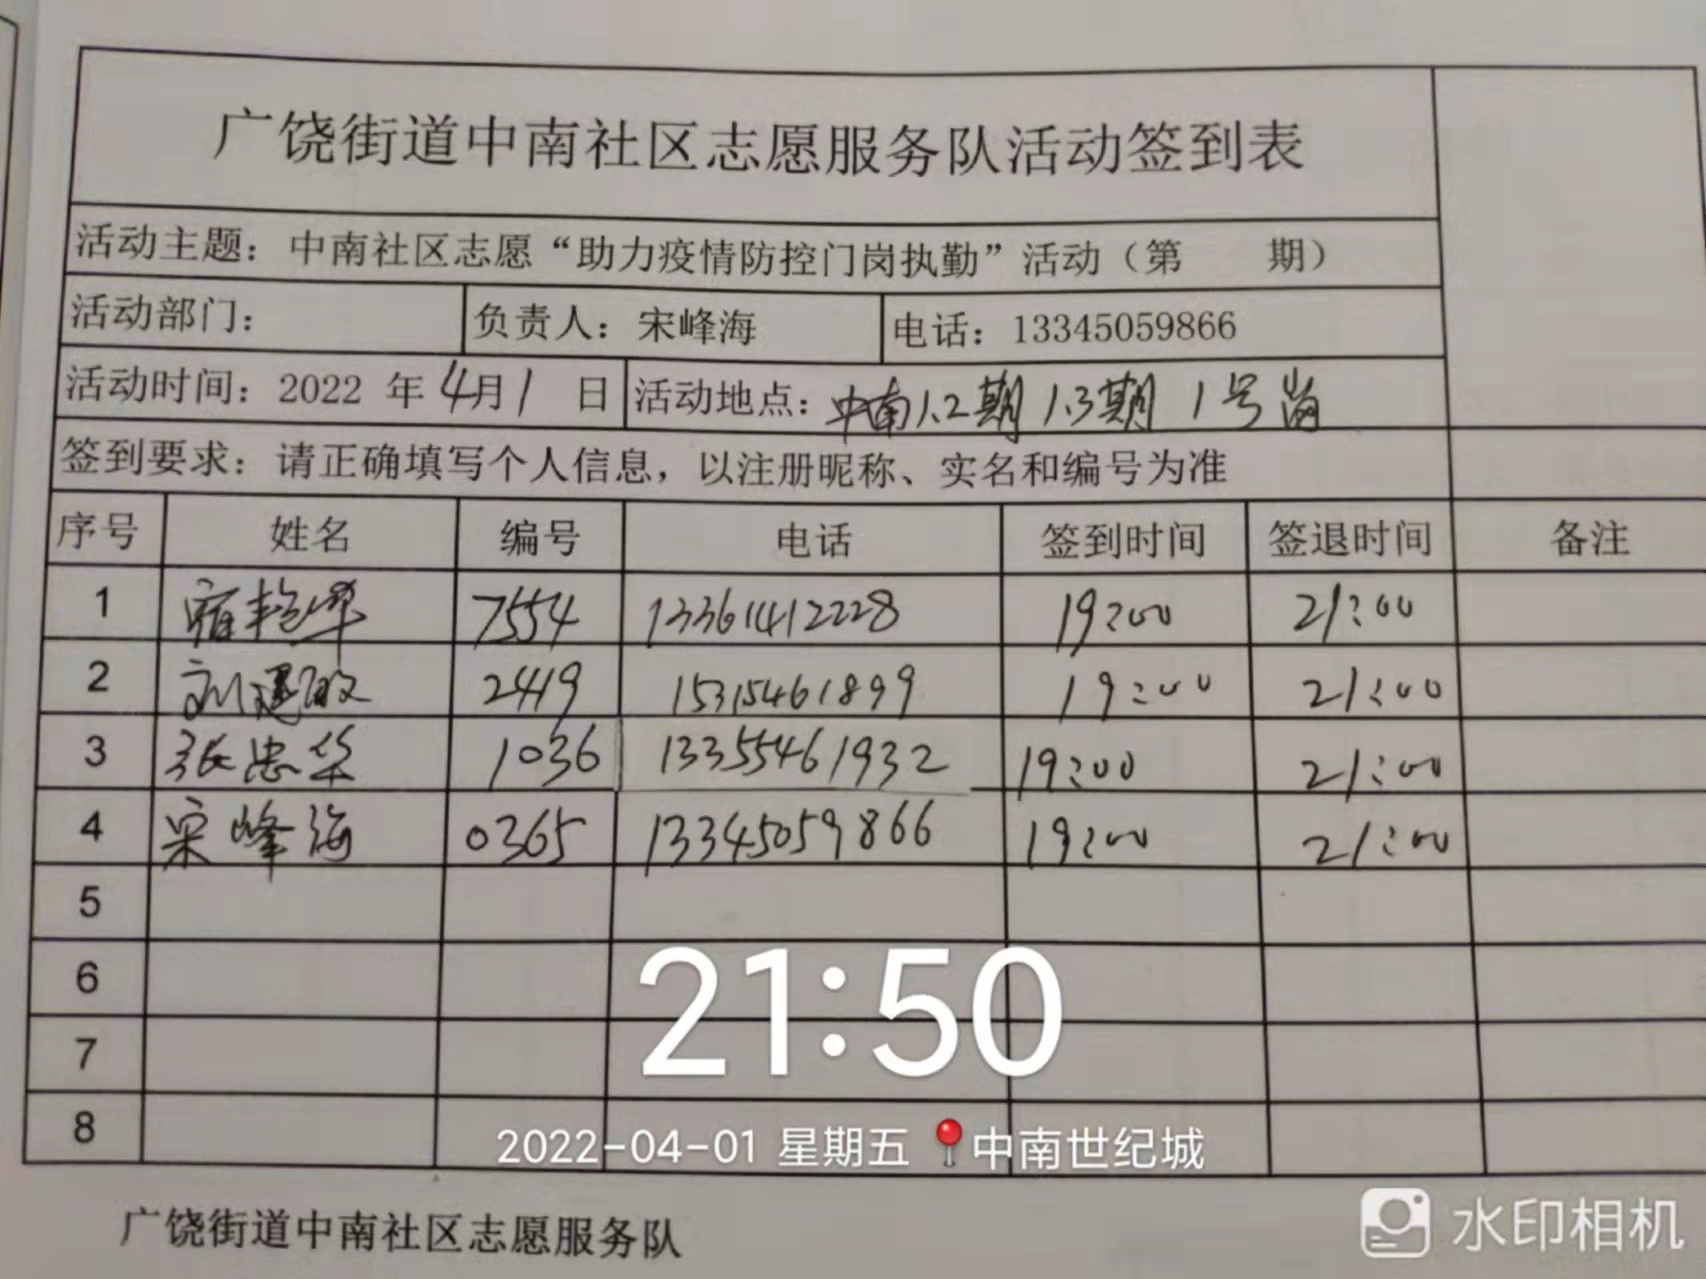 广饶街道中南社区志愿服务队活动签到表
活动主题：中南社区志愿“助力疫情防控门岗执勤”活动（第 期）
活动部门： 负责人：宋峰海 电话：13345059866
活动时间：2022 年 4月1 日 活动地点：中南1.2期 1.3期 1号岗
签到要求：请正确填写个人信息，以注册昵称、实名和编号为准
序号 姓名 编号 电话 签到时间 签退时间 备注
1 艳华 7554 13361412228 19:00 21:00
2 刘建政 2419 15315461899 19:00 21:00
3 张忠华 1036 13355461932 19:00 21:00
4 宋峰海 0365 13345059866 19:00 21:00
5
6
7
8
21:50
2022-04-01 星期五 中南世纪城
广饶街道中南社区志愿服务队
水印相机